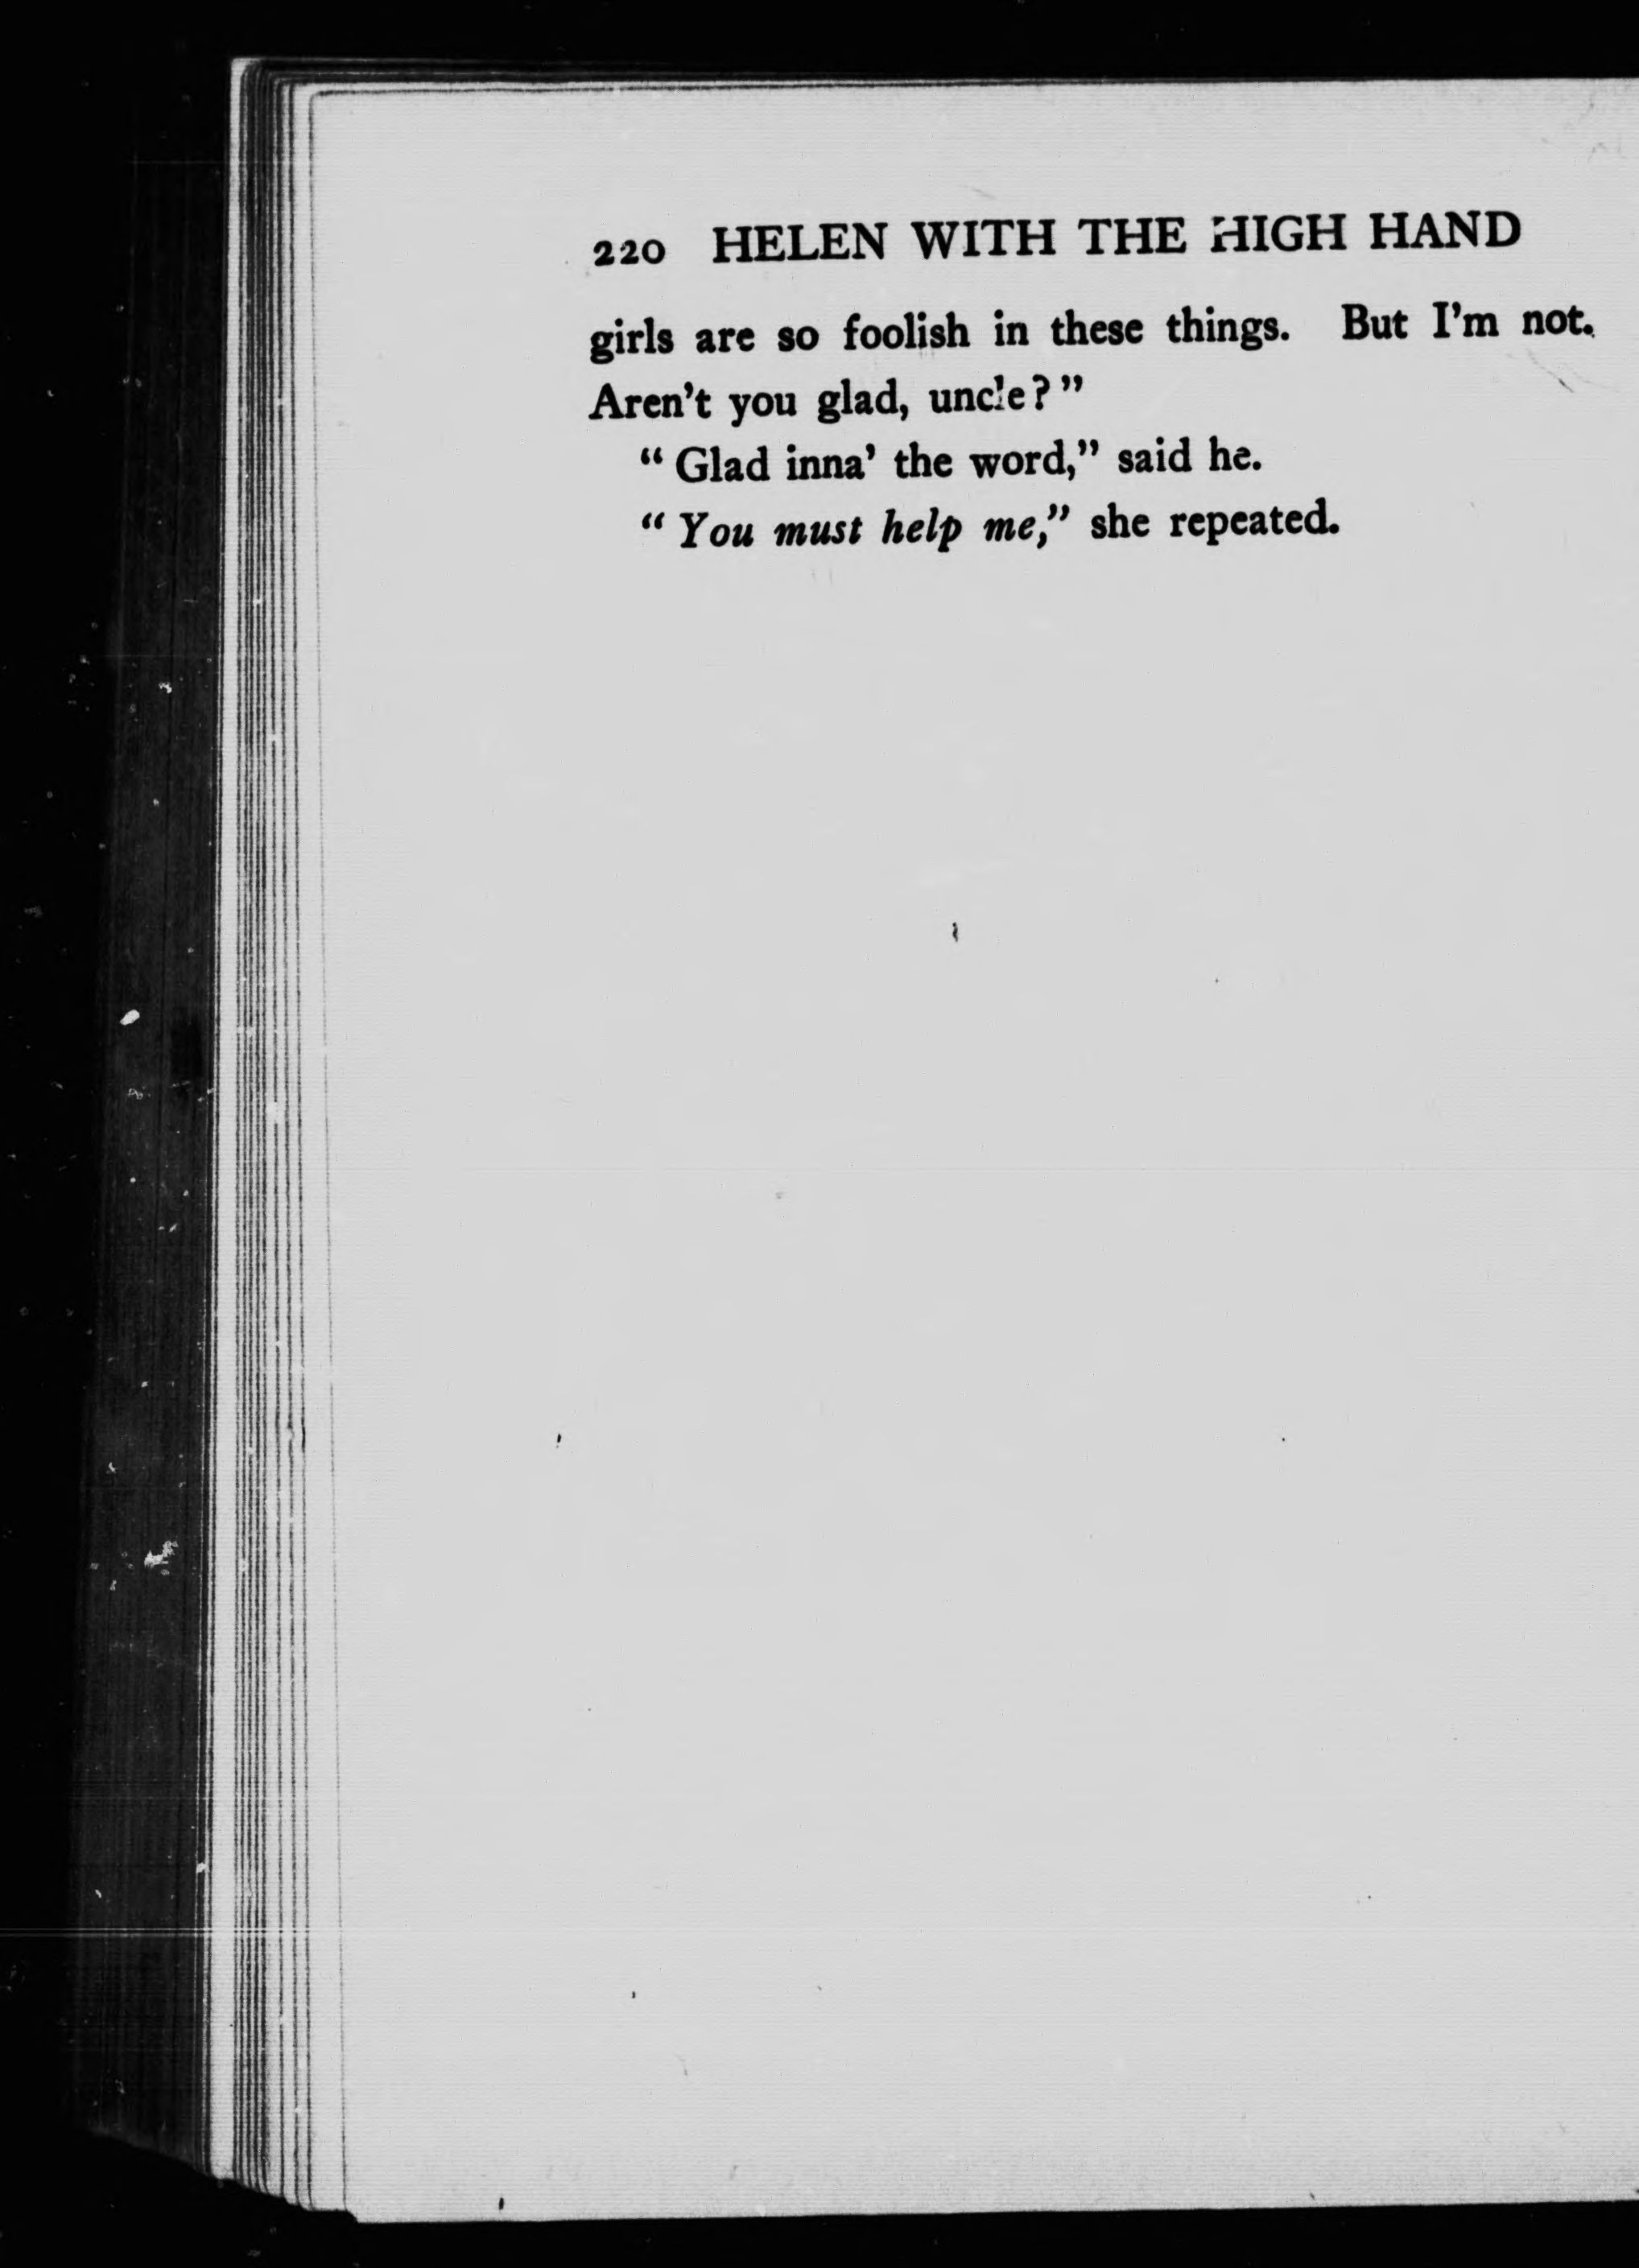 220 HELEN WITH THE HIGH HAND
girls are so foolish in these things. But I'm not.
Aren't you glad, uncle?”
“Glad inna’ the word,” said he.
“You must help me,” she repeated.